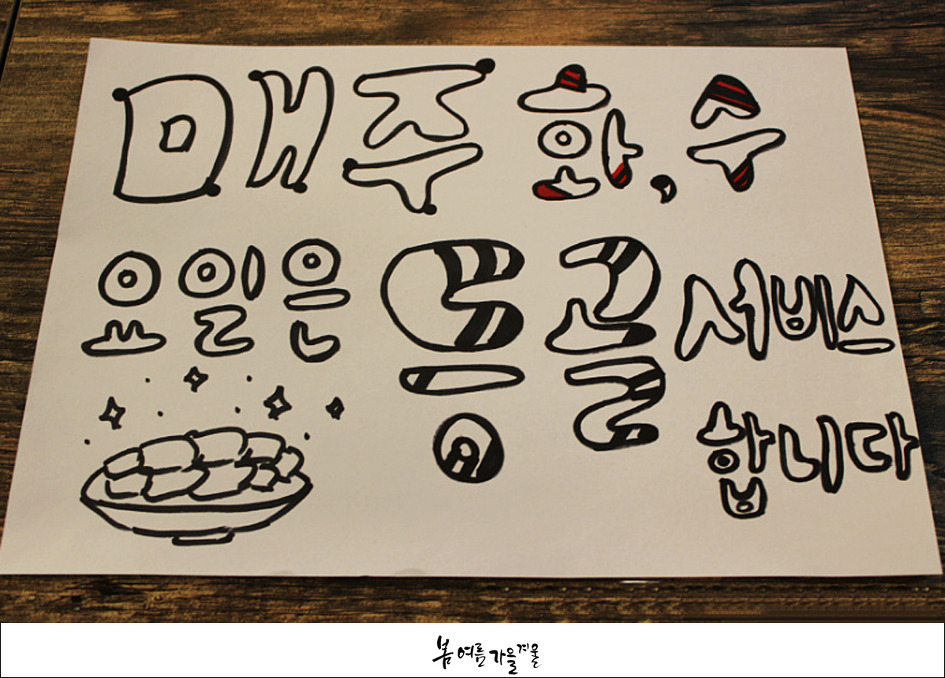 매주 화, 수
요일은 등골 서비스
합니다
봄 여름 가을 겨울